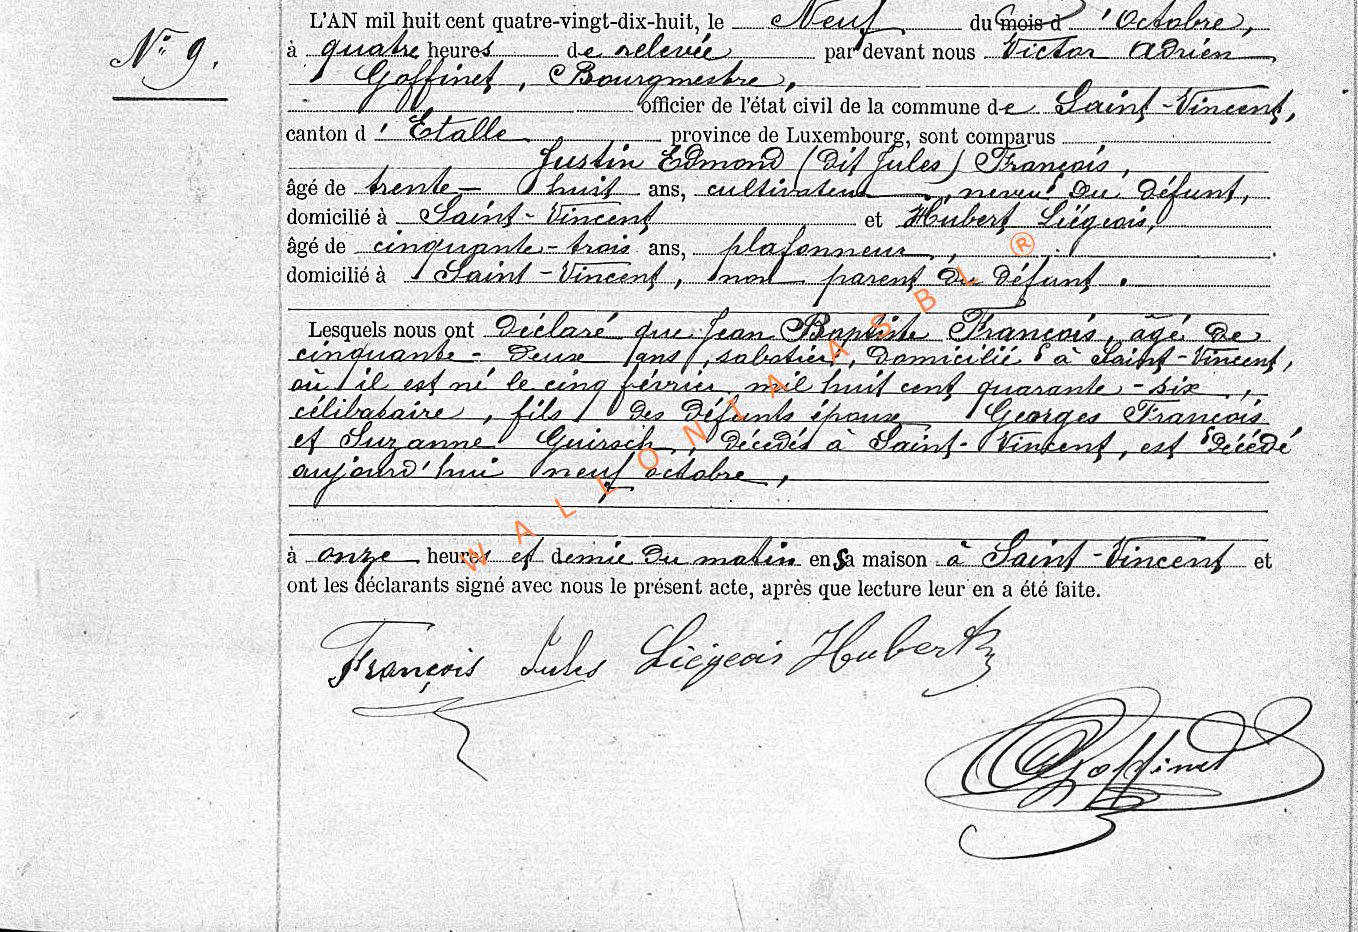 N° 9.
L'AN mil huit cent quatre-vingt-dix-huit, le Neuf du mois d'Octobre,
à quatre heures de relevée par devant nous Victor Adrien
Goffinet, Bourgmestre,
officier de l'état civil de la commune de Saint-Vincent,
canton d'Etalle province de Luxembourg, sont comparus
Justin Edmond (dit Jules) François,
âgé de trente-huit ans, cultivateur, neveu du défunt,
domicilié à Saint-Vincent et Hubert Liégeois,
âgé de cinquante-trois ans, plafonneur,
domicilié à Saint-Vincent, non parent du défunt.
Lesquels nous ont déclaré que Jean Baptiste François, âgé de
cinquante-deux ans, sabotier, domicilié à Saint-Vincent,
où il est né le cinq février mil huit cent quarante-six,
célibataire, fils des défunts époux Georges François
et Suzanne Guirsch, décédés à Saint-Vincent, est décédé
aujourd'hui neuf octobre,
à onze heures et demie du matin en sa maison à Saint-Vincent et
ont les déclarants signé avec nous le présent acte, après que lecture leur en a été faite.
François Jules Liégeois Hubert
Goffinet
WALLONIA ASBL ®